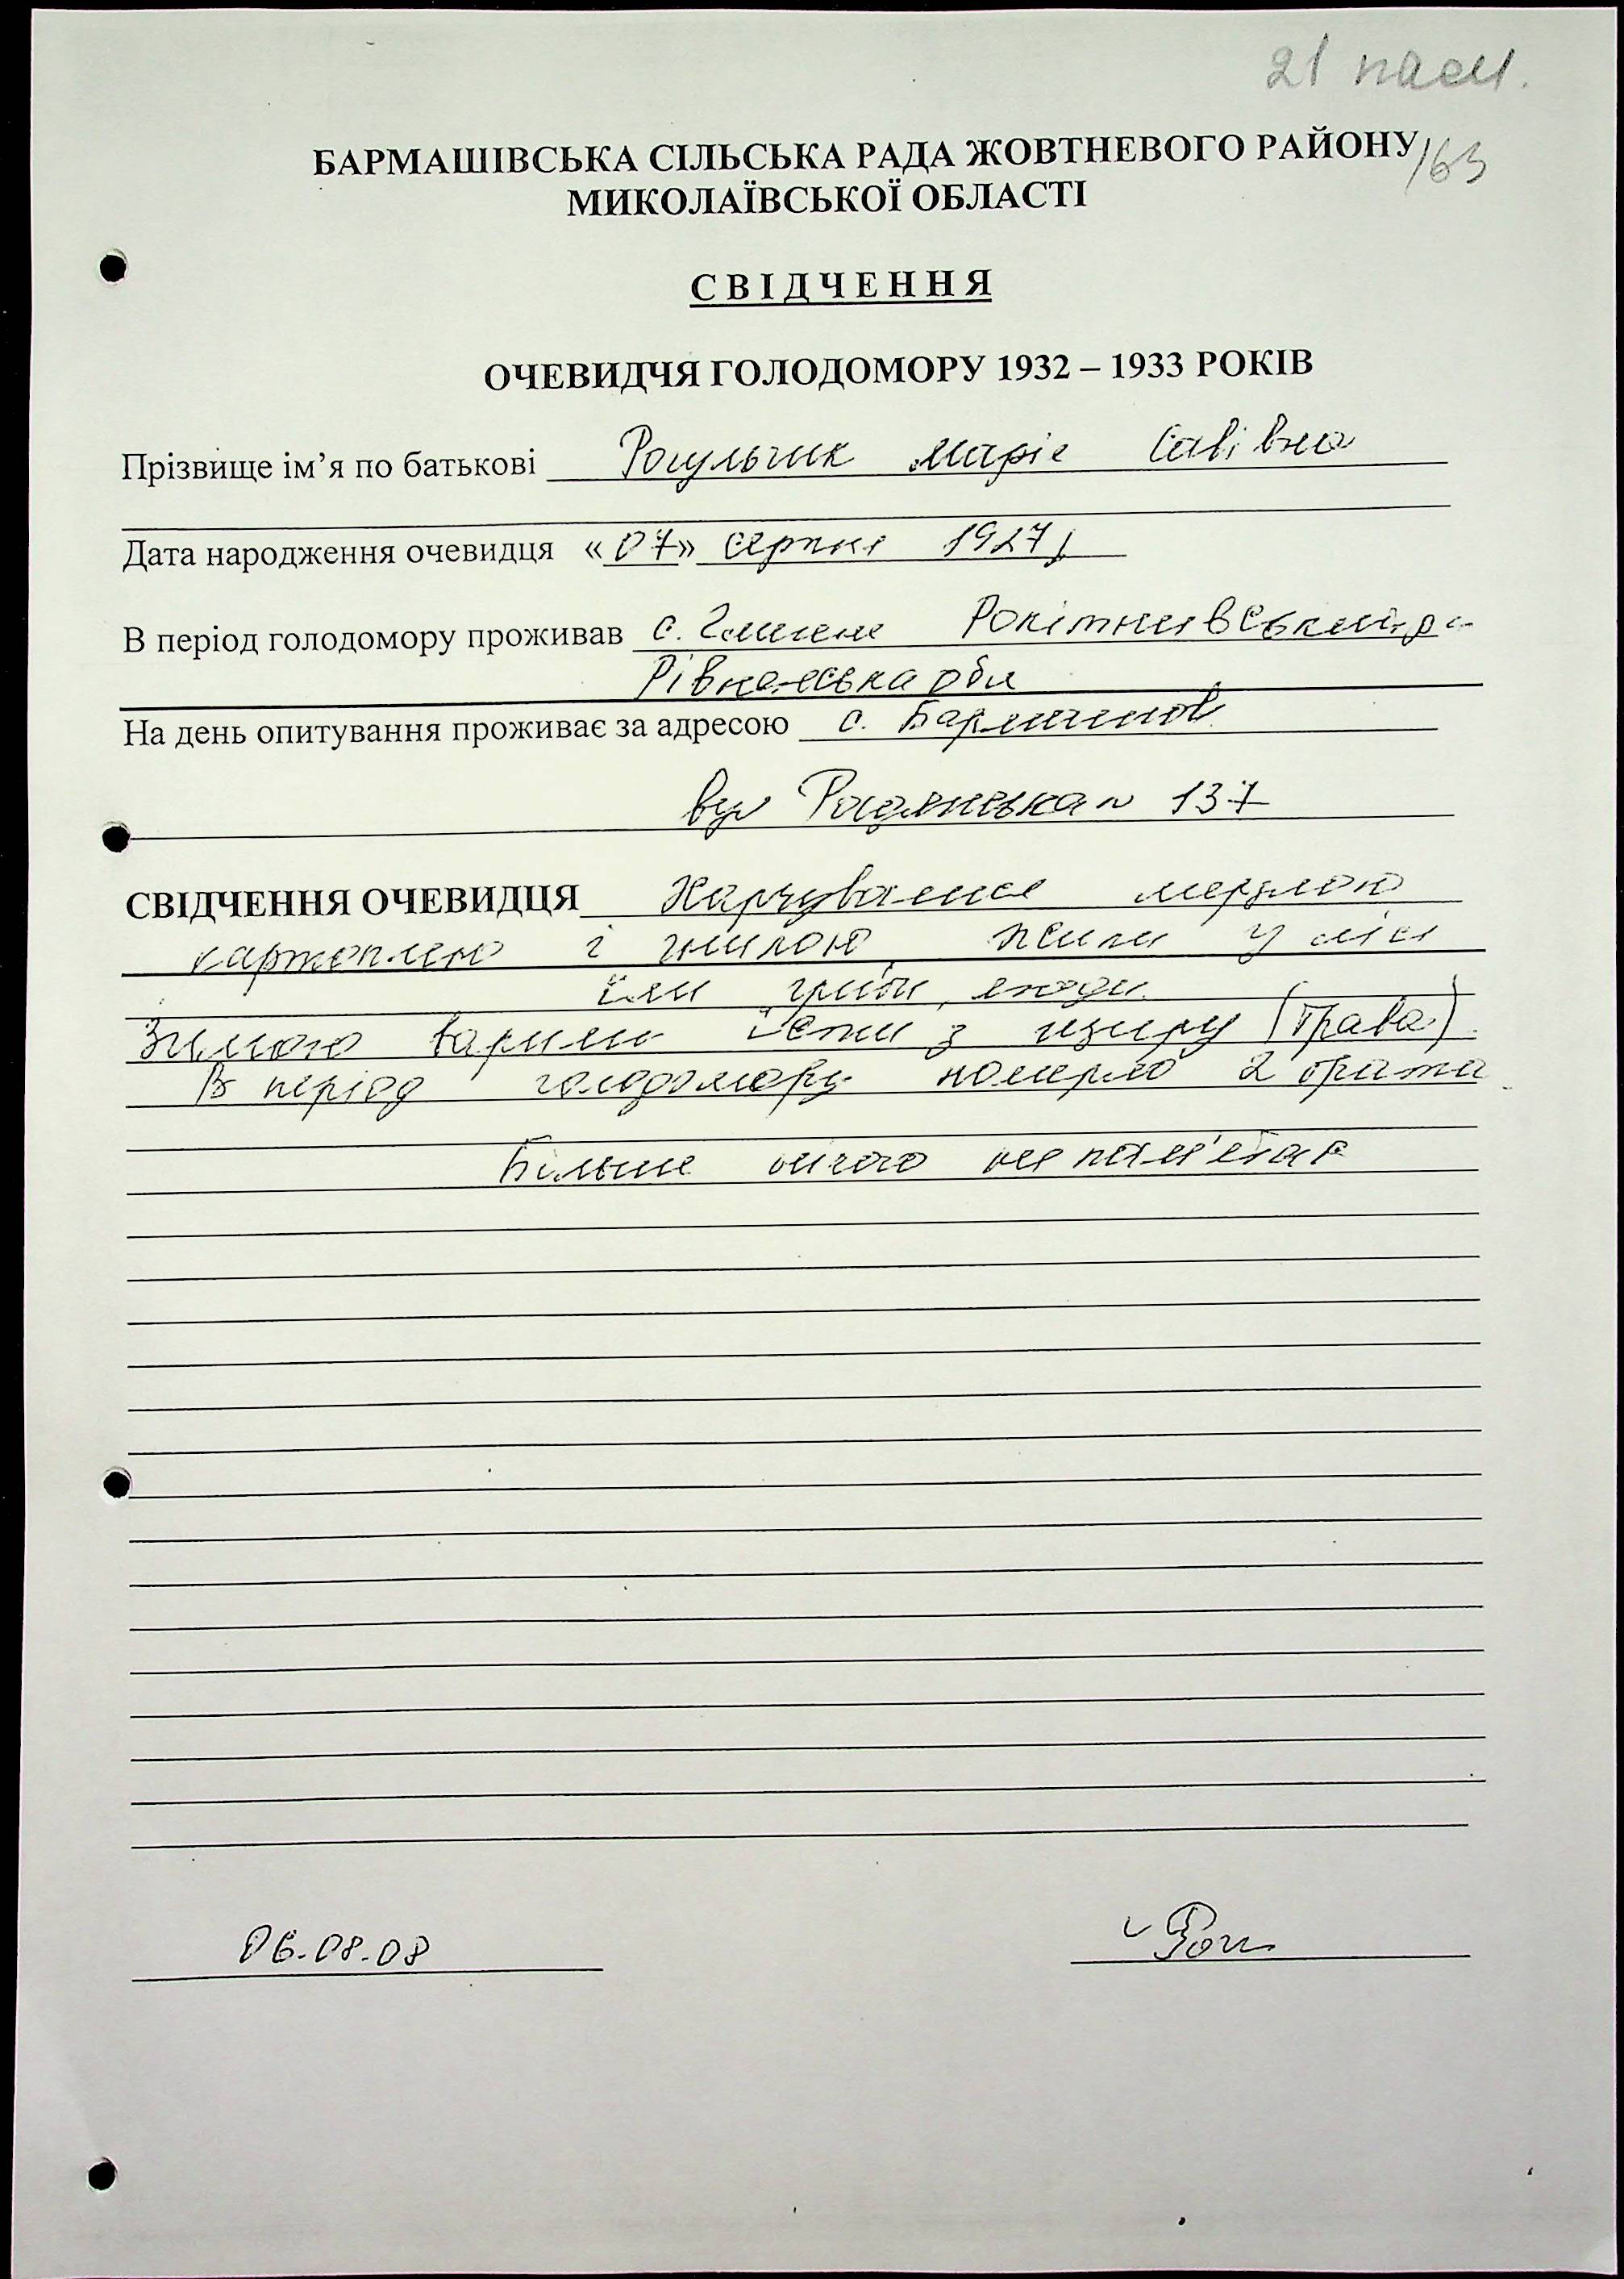 21 пасп.
БАРМАШІВСЬКА СІЛЬСЬКА РАДА ЖОВТНЕВОГО РАЙОНУ /63
МИКОЛАЇВСЬКОЇ ОБЛАСТІ
СВІДЧЕННЯ
ОЧЕВИДЧЯ ГОЛОДОМОРУ 1932 – 1933 РОКІВ
Прізвище ім’я по батькові Рогульчик Марія Савівна
Дата народження очевидця «07» серпня 1927 р
В період голодомору проживав с. Рокітнивський р-н
Рівненська обл
На день опитування проживає за адресою с. Бармашове
вул Радянська 137
СВІДЧЕННЯ ОЧЕВИДЦЯ Харчувалися мерзлою
картоплею і гнилою, жили у лісі
їли гриби, ягоди.
Зимою варили з щиру (трава)
В період голодомору померло 2 брата
Більше нічого не пам'ятає
06.08.08